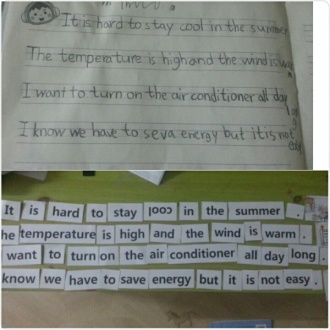 It is hard to stay cool in the summer
The temperature is high and the wind is
I want to turn on the air conditioner all day
I know we have to seva energy but it is not
easy
It is hard to stay cool in the summer .
he temperature is high and the wind is warm .
want to turn on the air conditioner all day long .
know we have to save energy but it is not easy .